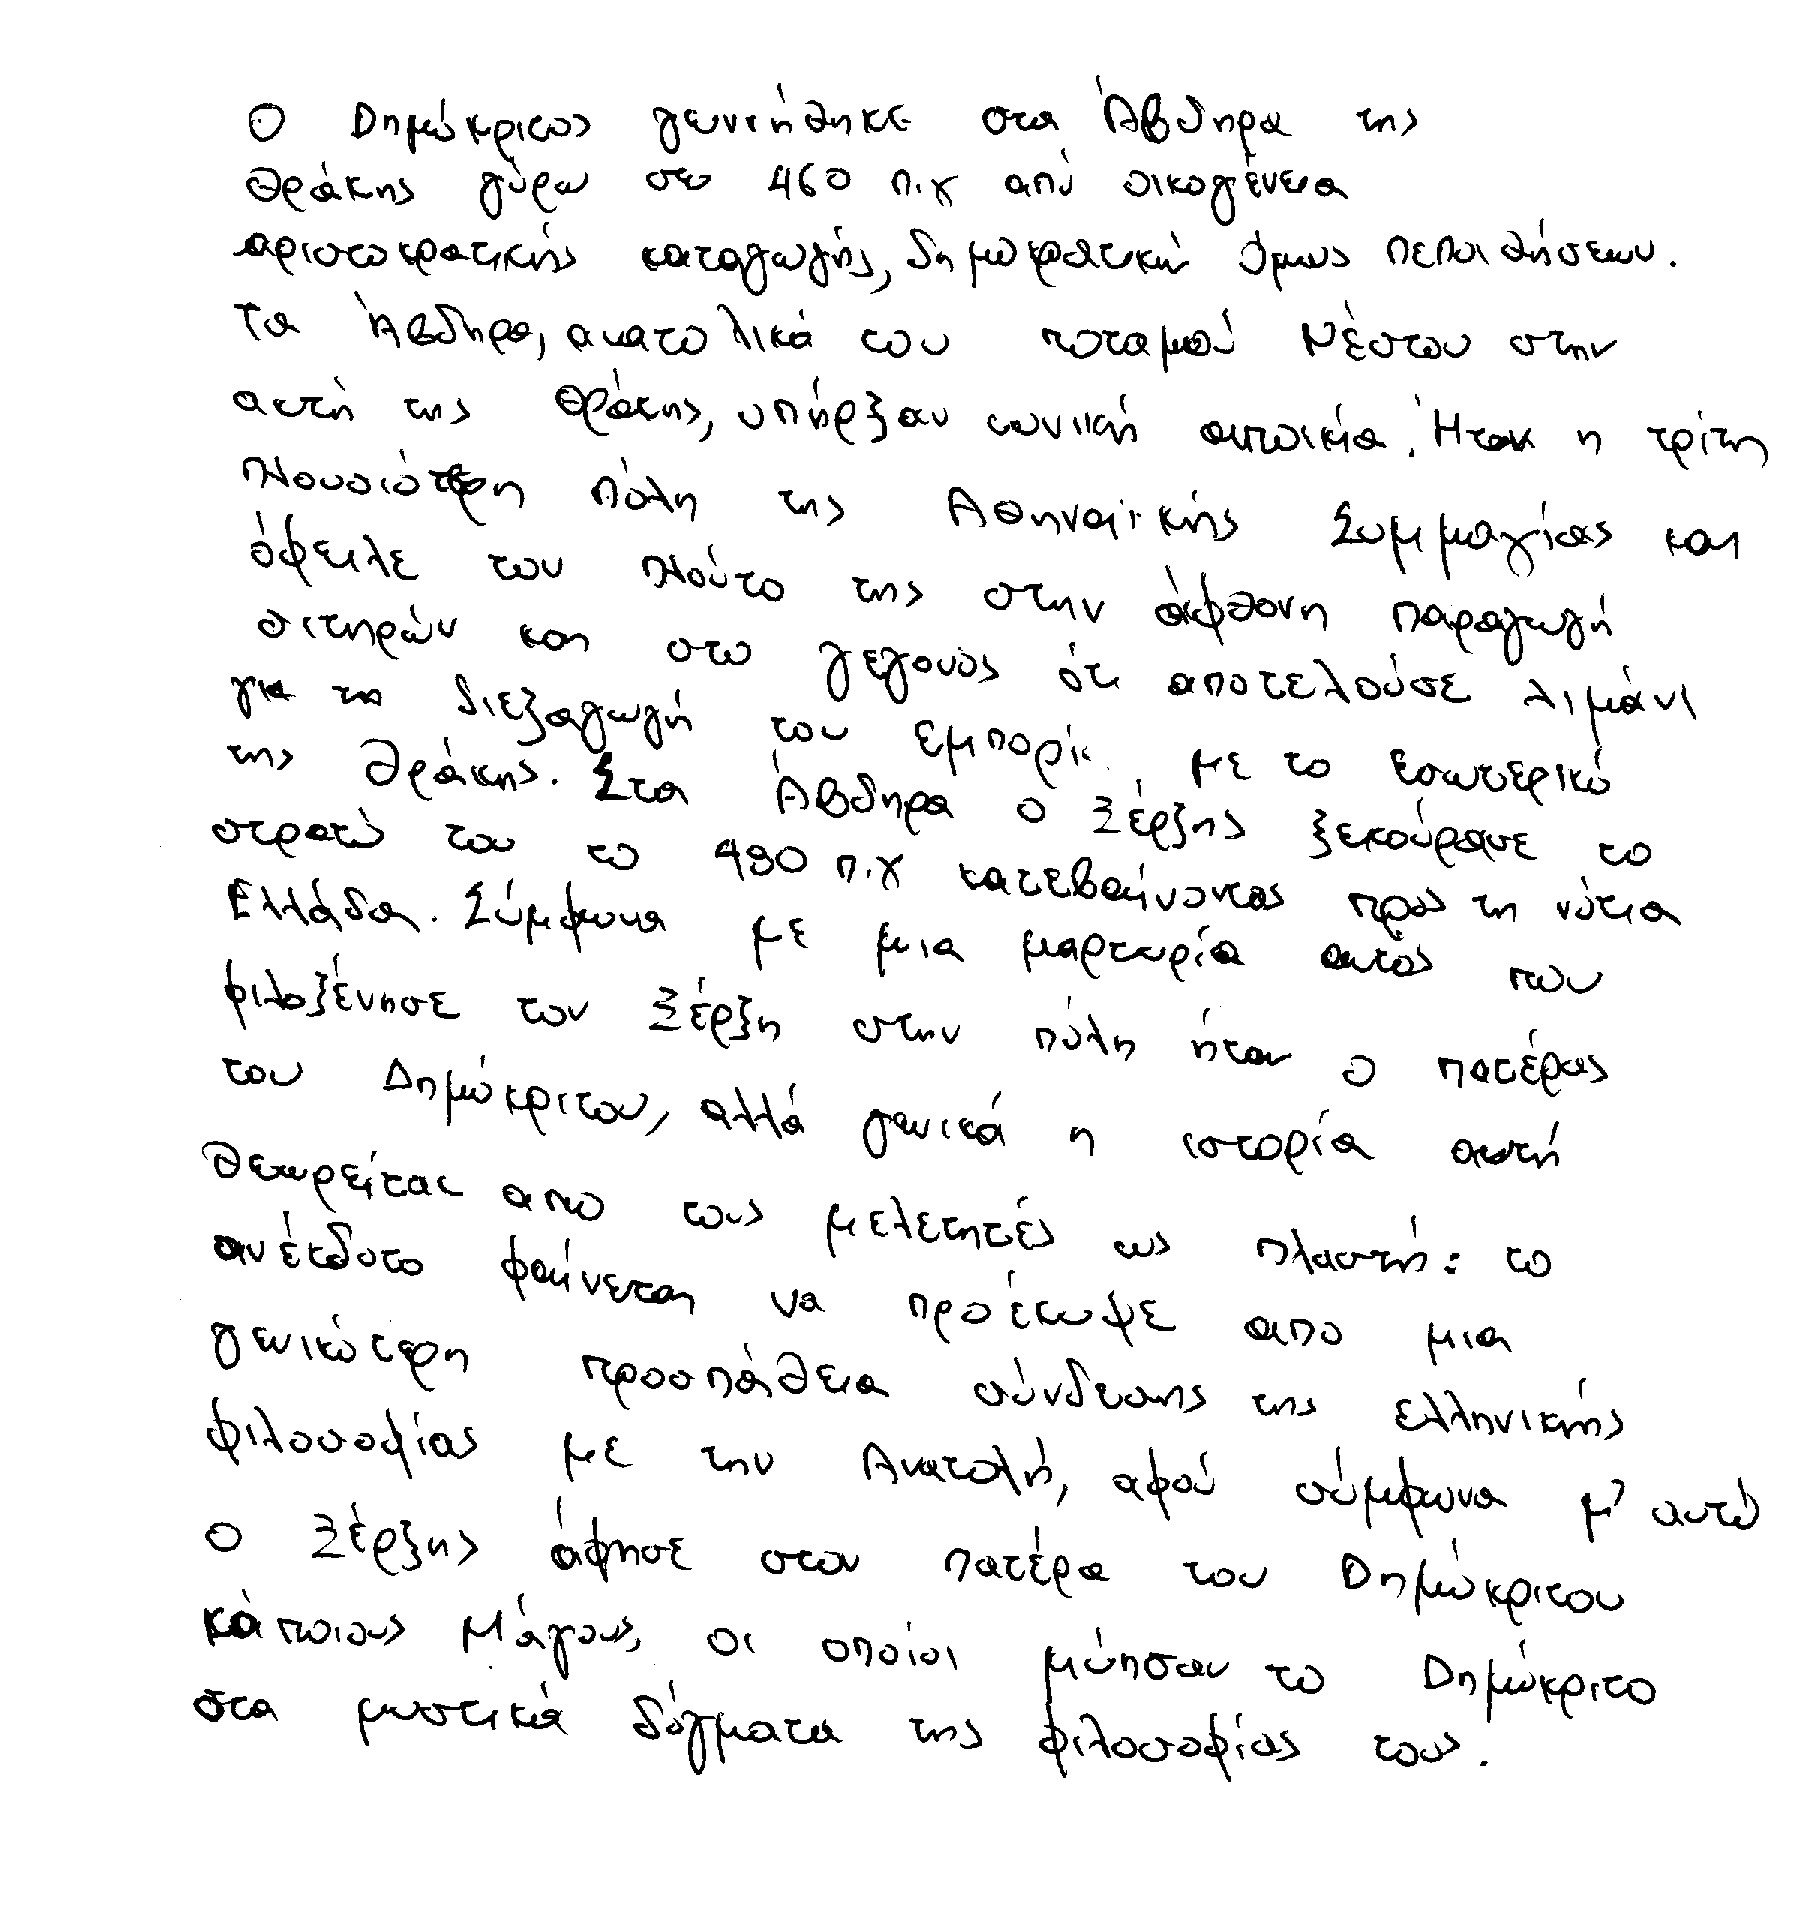 Ο Δημόκριτος γεννήθηκε στα Άβδηρα της
Θράκης γύρω στο 460 π.χ από οικογένεια
αριστοκρατικής καταγωγής, δημοκρατικών όμως πεποιθήσεων.
Τα Άβδηρα, ανατολικά του ποταμού Νέστου στην
ακτή της Θράκης, υπήρξαν ιωνική αποικία. Ήταν η τρίτη
πλουσιότερη πόλη της Αθηναϊκής Συμμαχίας και
όφειλε τον πλούτο της στην άφθονη παραγωγή
σιτηρών και στο γεγονός ότι αποτελούσε λιμάνι
για τη διεξαγωγή του με το εσωτερικό
της Θράκης. Στα Άβδηρα ο Ξέρξης ξεκούρασε το
στρατό του το 480 π.χ κατεβαίνοντας προς τη νότια
Ελλάδα. Σύμφωνα με μια μαρτυρία αυτός που
φιλοξένησε τον Ξέρξη στην πόλη ήταν ο πατέρας
του Δημόκριτου, αλλά γενικά η ιστορία αυτή
θεωρείται απο τους μελετητές ως πλαστή: το
ανέκδοτο φαίνεται να προέκυψε απο μια
γενικότερη προσπάθεια σύνδεσης της ελληνικής
φιλοσοφίας με την Ανατολή, αφού σύμφωνα μ' αυτό
ο Ξέρξης άφησε στον πατέρα του Δημόκριτου
κάποιους Μάγους, οι οποίοι μύησαν το Δημόκριτο
στα μυστικά δόγματα της φιλοσοφίας τους.